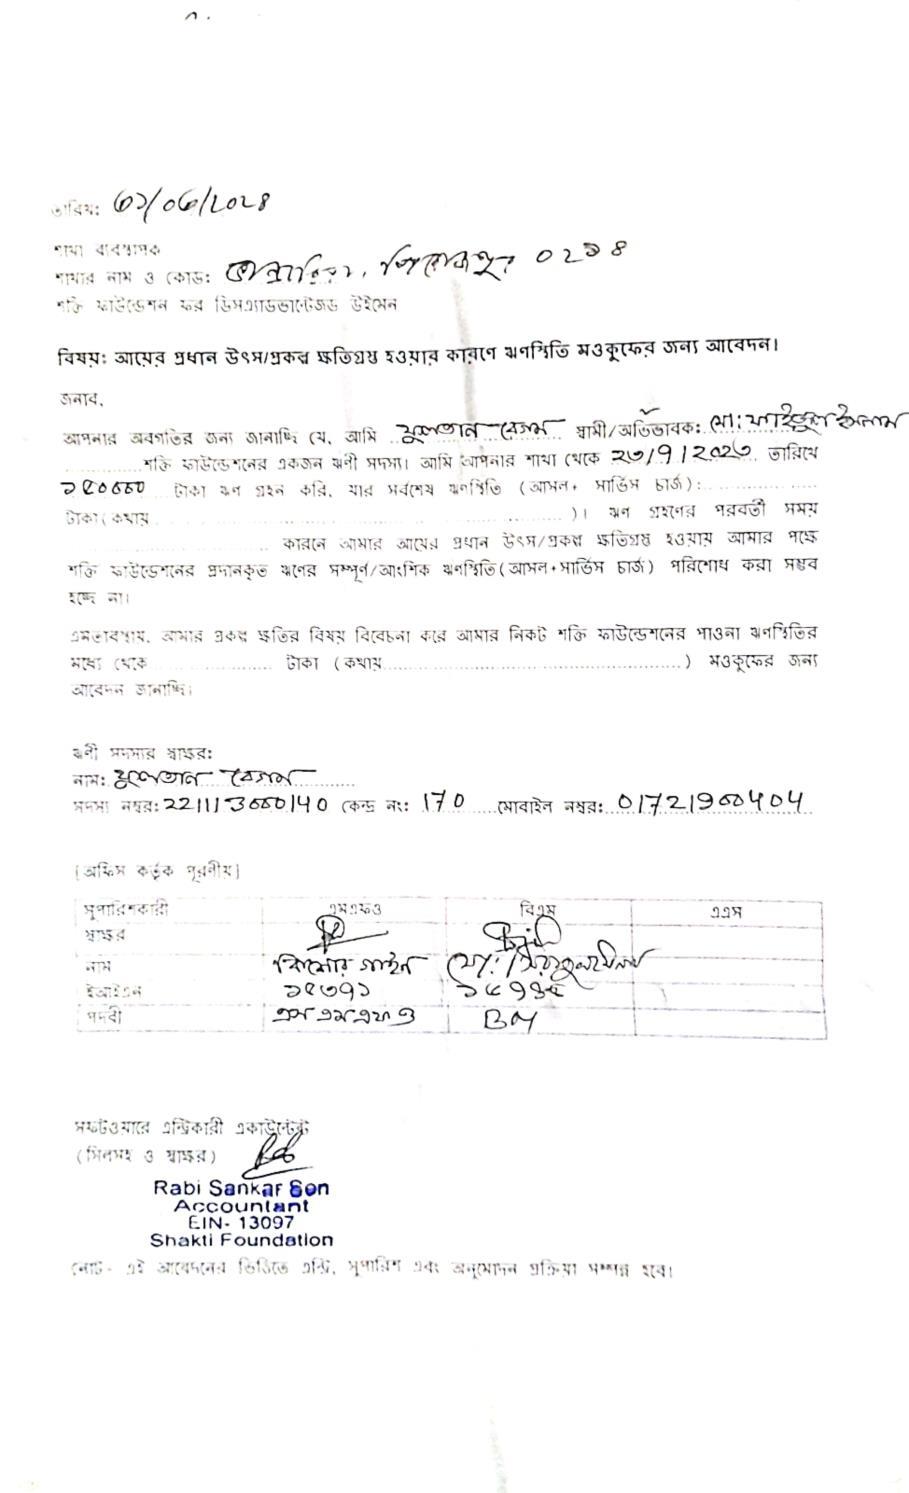 তারিখ: ৩১/০৩/২০২৪
শাখা ব্যবস্থাপক
শাখার নাম ও কোড: ০২১৪
শক্তি ফাউন্ডেশন ফর ডিসএ্যাডভান্টেজড উইমেন
বিষয়: আয়ের প্রধান উৎস/প্রকল্প ক্ষতিগ্রস্ত হওয়ার কারণে ঋণস্থিতি মওকুফের জন্য আবেদন।
জনাব,
আপনার অবগতির জন্য জানাচ্ছি যে, আমি বেগম স্বামী/অভিভাবক: মো: ইসলাম
শক্তি ফাউন্ডেশনের একজন ঋণী সদস্য। আমি আপনার শাখা থেকে ২৩/৭/২০২৩ তারিখে
১৫০০০০ টাকা ঋণ গ্রহন করি, যার সর্বশেষ ঋণস্থিতি (আসল+ সার্ভিস চার্জ):..................
টাকা(কথায়............................................................)। ঋণ গ্রহণের পরবর্তী সময়
............................ কারনে আমার আয়ের প্রধান উৎস/প্রকল্প ক্ষতিগ্রস্ত হওয়ায় আমার পক্ষে
শক্তি ফাউন্ডেশনের প্রদানকৃত ঋণের সম্পূর্ণ/আংশিক ঋণস্থিতি(আসল+সার্ভিস চার্জ) পরিশোধ করা সম্ভব
হচ্ছে না।
এমতাবস্থায়, আমার প্রকল্প ক্ষতির বিষয় বিবেচনা করে আমার নিকট শক্তি ফাউন্ডেশনের পাওনা ঋণস্থিতির
মধ্যে থেকে .................. টাকা (কথায়.............................................) মওকুফের জন্য
আবেদন জানাচ্ছি।
ঋণী সদস্যর স্বাক্ষর:
নাম: বেগম
সদস্য নম্বর: 221113000140 কেন্দ্র নং: 170 মোবাইল নম্বর: 01721900404
[অফিস কর্তৃক পূরণীয়]
সুপারিশকারী এমএফও বিএম এএস
স্বাক্ষর
নাম কিশোর গাইন মো:
ইআইএন ১৫৩৭১
পদবী এস এম এফ ও BM
সফটওয়ারে এন্ট্রিকারী একাউন্টেন্ট
(সিলসহ ও স্বাক্ষর)
Rabi Sankar Sen
Accountant
EIN- 13097
Shakti Foundation
নোট- এই আবেদনের ভিত্তিতে এন্ট্রি, সুপারিশ এবং অনুমোদন প্রক্রিয়া সম্পন্ন হবে।